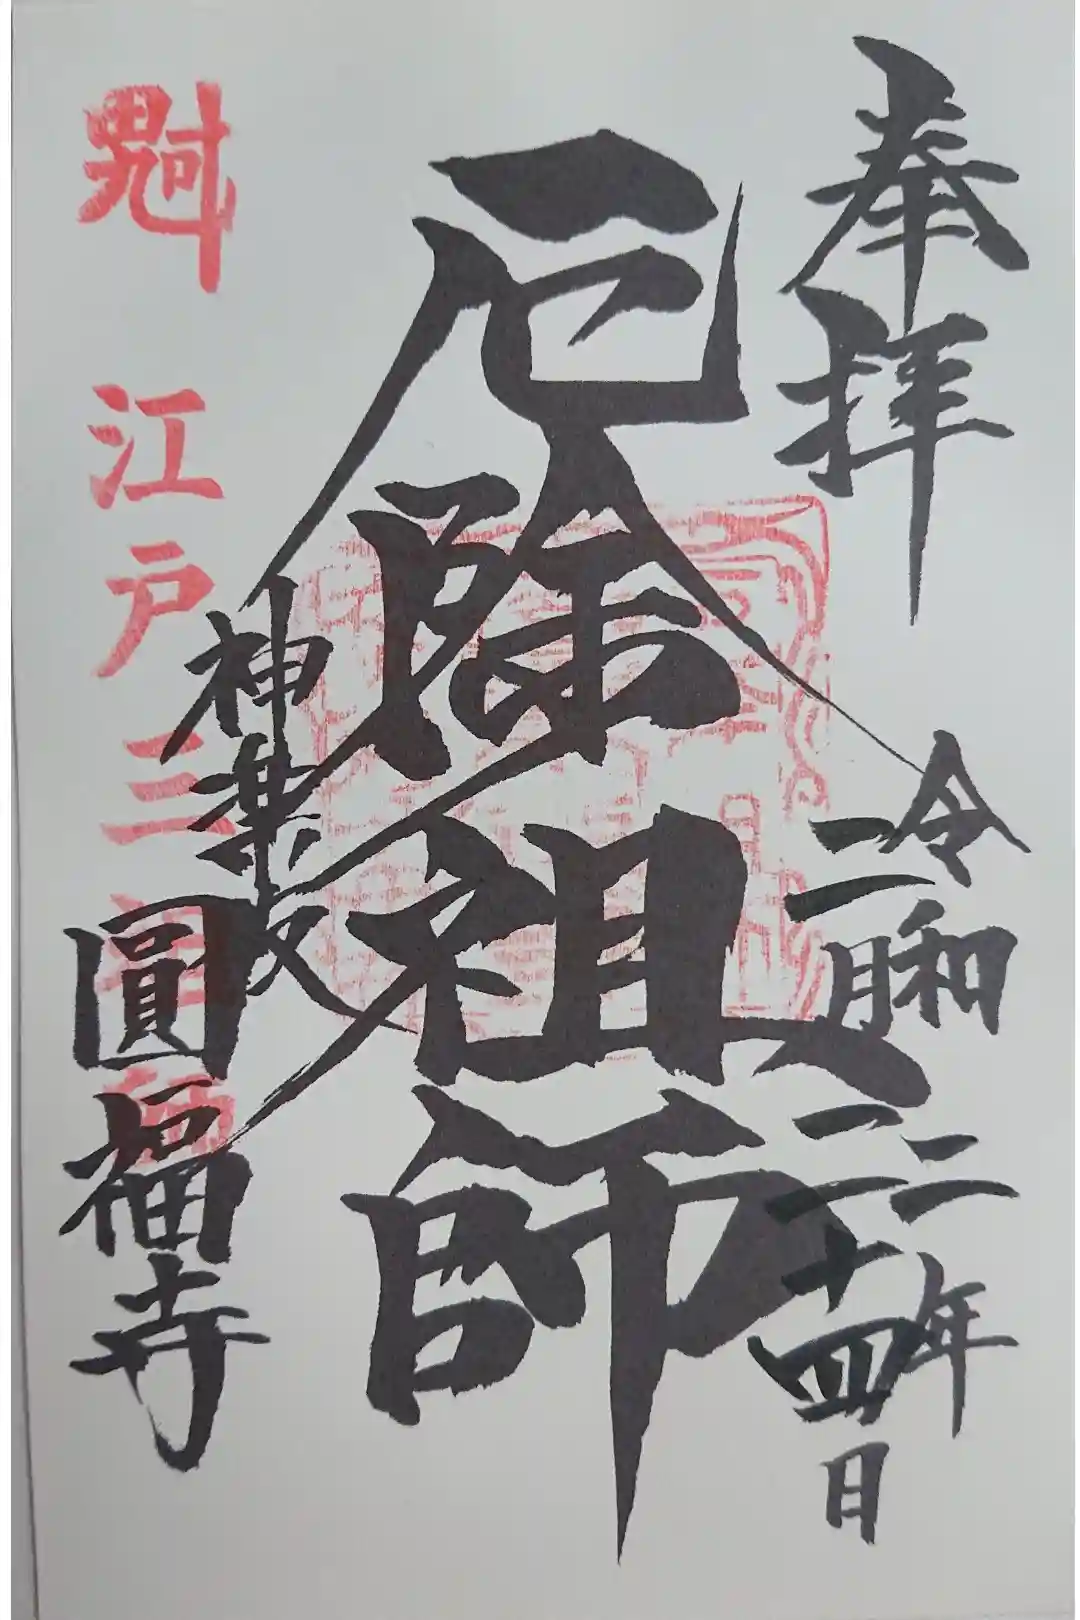 奉拝
令和二年
二月二十四日
厄除祖師
神楽坂
圓福寺
魁 江戸三祖師